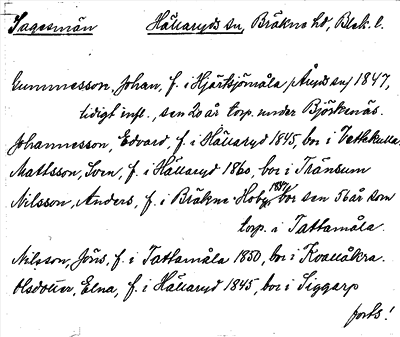 Sagesmän Hällaryds sn, Bräkne hd, Blek. l.
Gummesson, Johan, f. i Hjärtsjömåla, Åryds sn, 1847,
tidigt infl., sen 20 år torp. under Björkenäs.
Johannesson, Edvard, f. i Hällaryd 1845, bor i Vettekulla.
Mattsson, Sven, f. i Hällaryd 1860, bor i Tränsum
Nilsson, Anders, f. i Bräkne-Hoby, bor sen 56 år som
torp. i Tattamåla.
Nilsson, Jöns, f. i Tattamåla 1850, bor i Kvallåkra.
Olsdotter, Elna, f. i Hällaryd 1845, bor i Siggarp
forts!